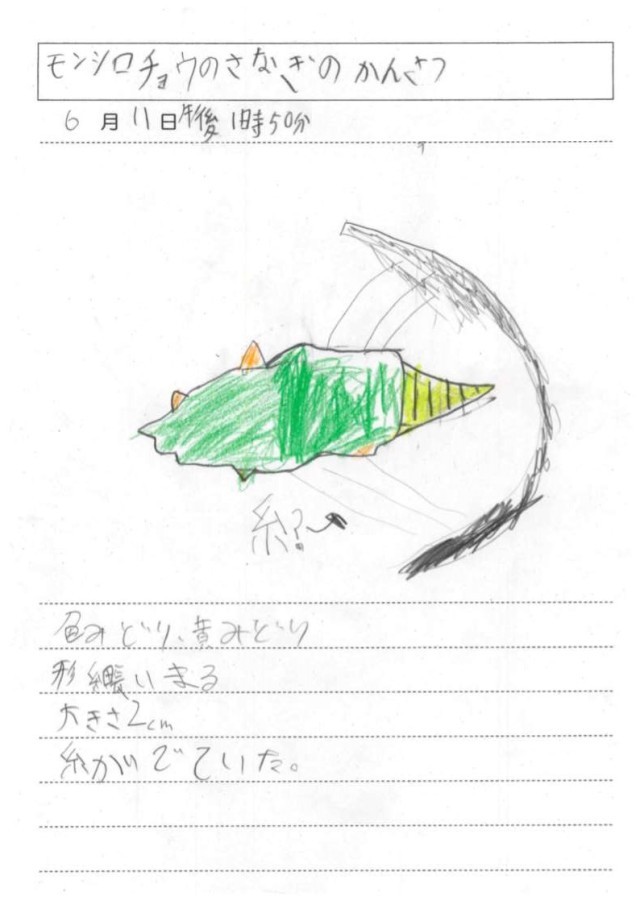 モンシロチョウのさなぎのかんさつ
6月11日午後1時50分
糸?
色みどり、黄みどり
形細長いまる
大きさ2cm
糸がでていた。